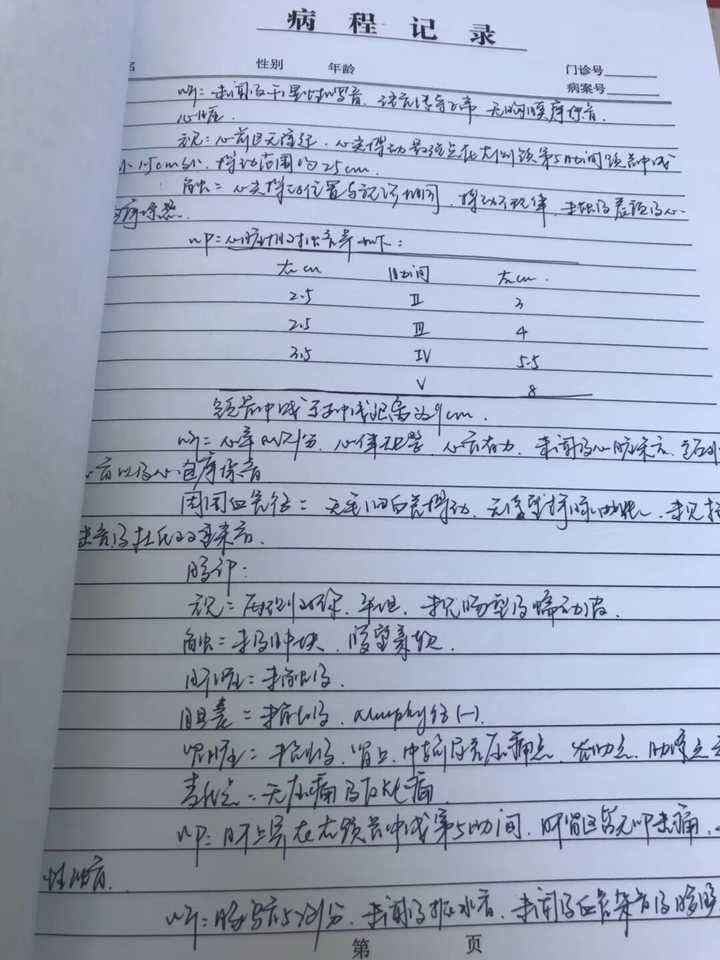 病程记录
性别 年龄 门诊号
病案号
听：未闻及干湿性啰音，语音传导正常，无胸膜摩擦音。
心脏：
视：心前区无隆起，心尖搏动最强点在左侧第5肋间锁骨中线
1.5cm处，搏动范围约2.5cm。
触：心尖搏动位置与视诊相同，搏动不规律，未触及震颤及心
摩擦感。
叩：心脏相对浊音界如下：
右cm 肋间 左cm
2.5 Ⅱ 3
2.5 Ⅲ 4
3.5 Ⅳ 5.5
Ⅴ 8
锁骨中线至正中线距离为9cm。
听：心率 次/分，心律不整，心音有力，未闻及心脏杂音，
心音以及心包摩擦音
周围血管征：无毛细血管搏动，无 颈静脉怒张，未见
未闻及杜氏双重杂音。
腹部：
视：腹 ，平坦，未见肠型及蠕动波。
触：未及肿块，腹壁柔软。
肝脏：未触及。
胆囊：未触及，murphy征(-)。
未触及，胃上、中 无压痛点，
麦氏点：无压痛及反跳痛
叩：肝上界在右锁骨中线第5肋间，肝肾区皆无叩击痛，
性浊音。
听：肠鸣音5次/分，未闻及振水音，未闻及血管杂音及
第 页